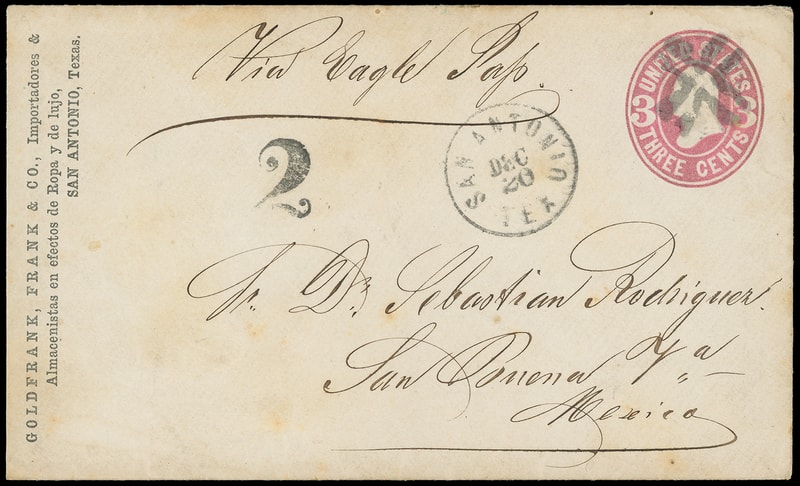 GOLDFRANK, FRANK & CO., Importadores &
Almacenistas en efectos de Ropa y de lujo,
SAN ANTONIO, Texas.
Via Eagle Pass.
2
SAN ANTONIO
DEC
20
TEX
UNITED STATES
3 3
THREE CENTS
Sr. Dn. Sebastian Rodriguez.
San Buena Va
Mexico